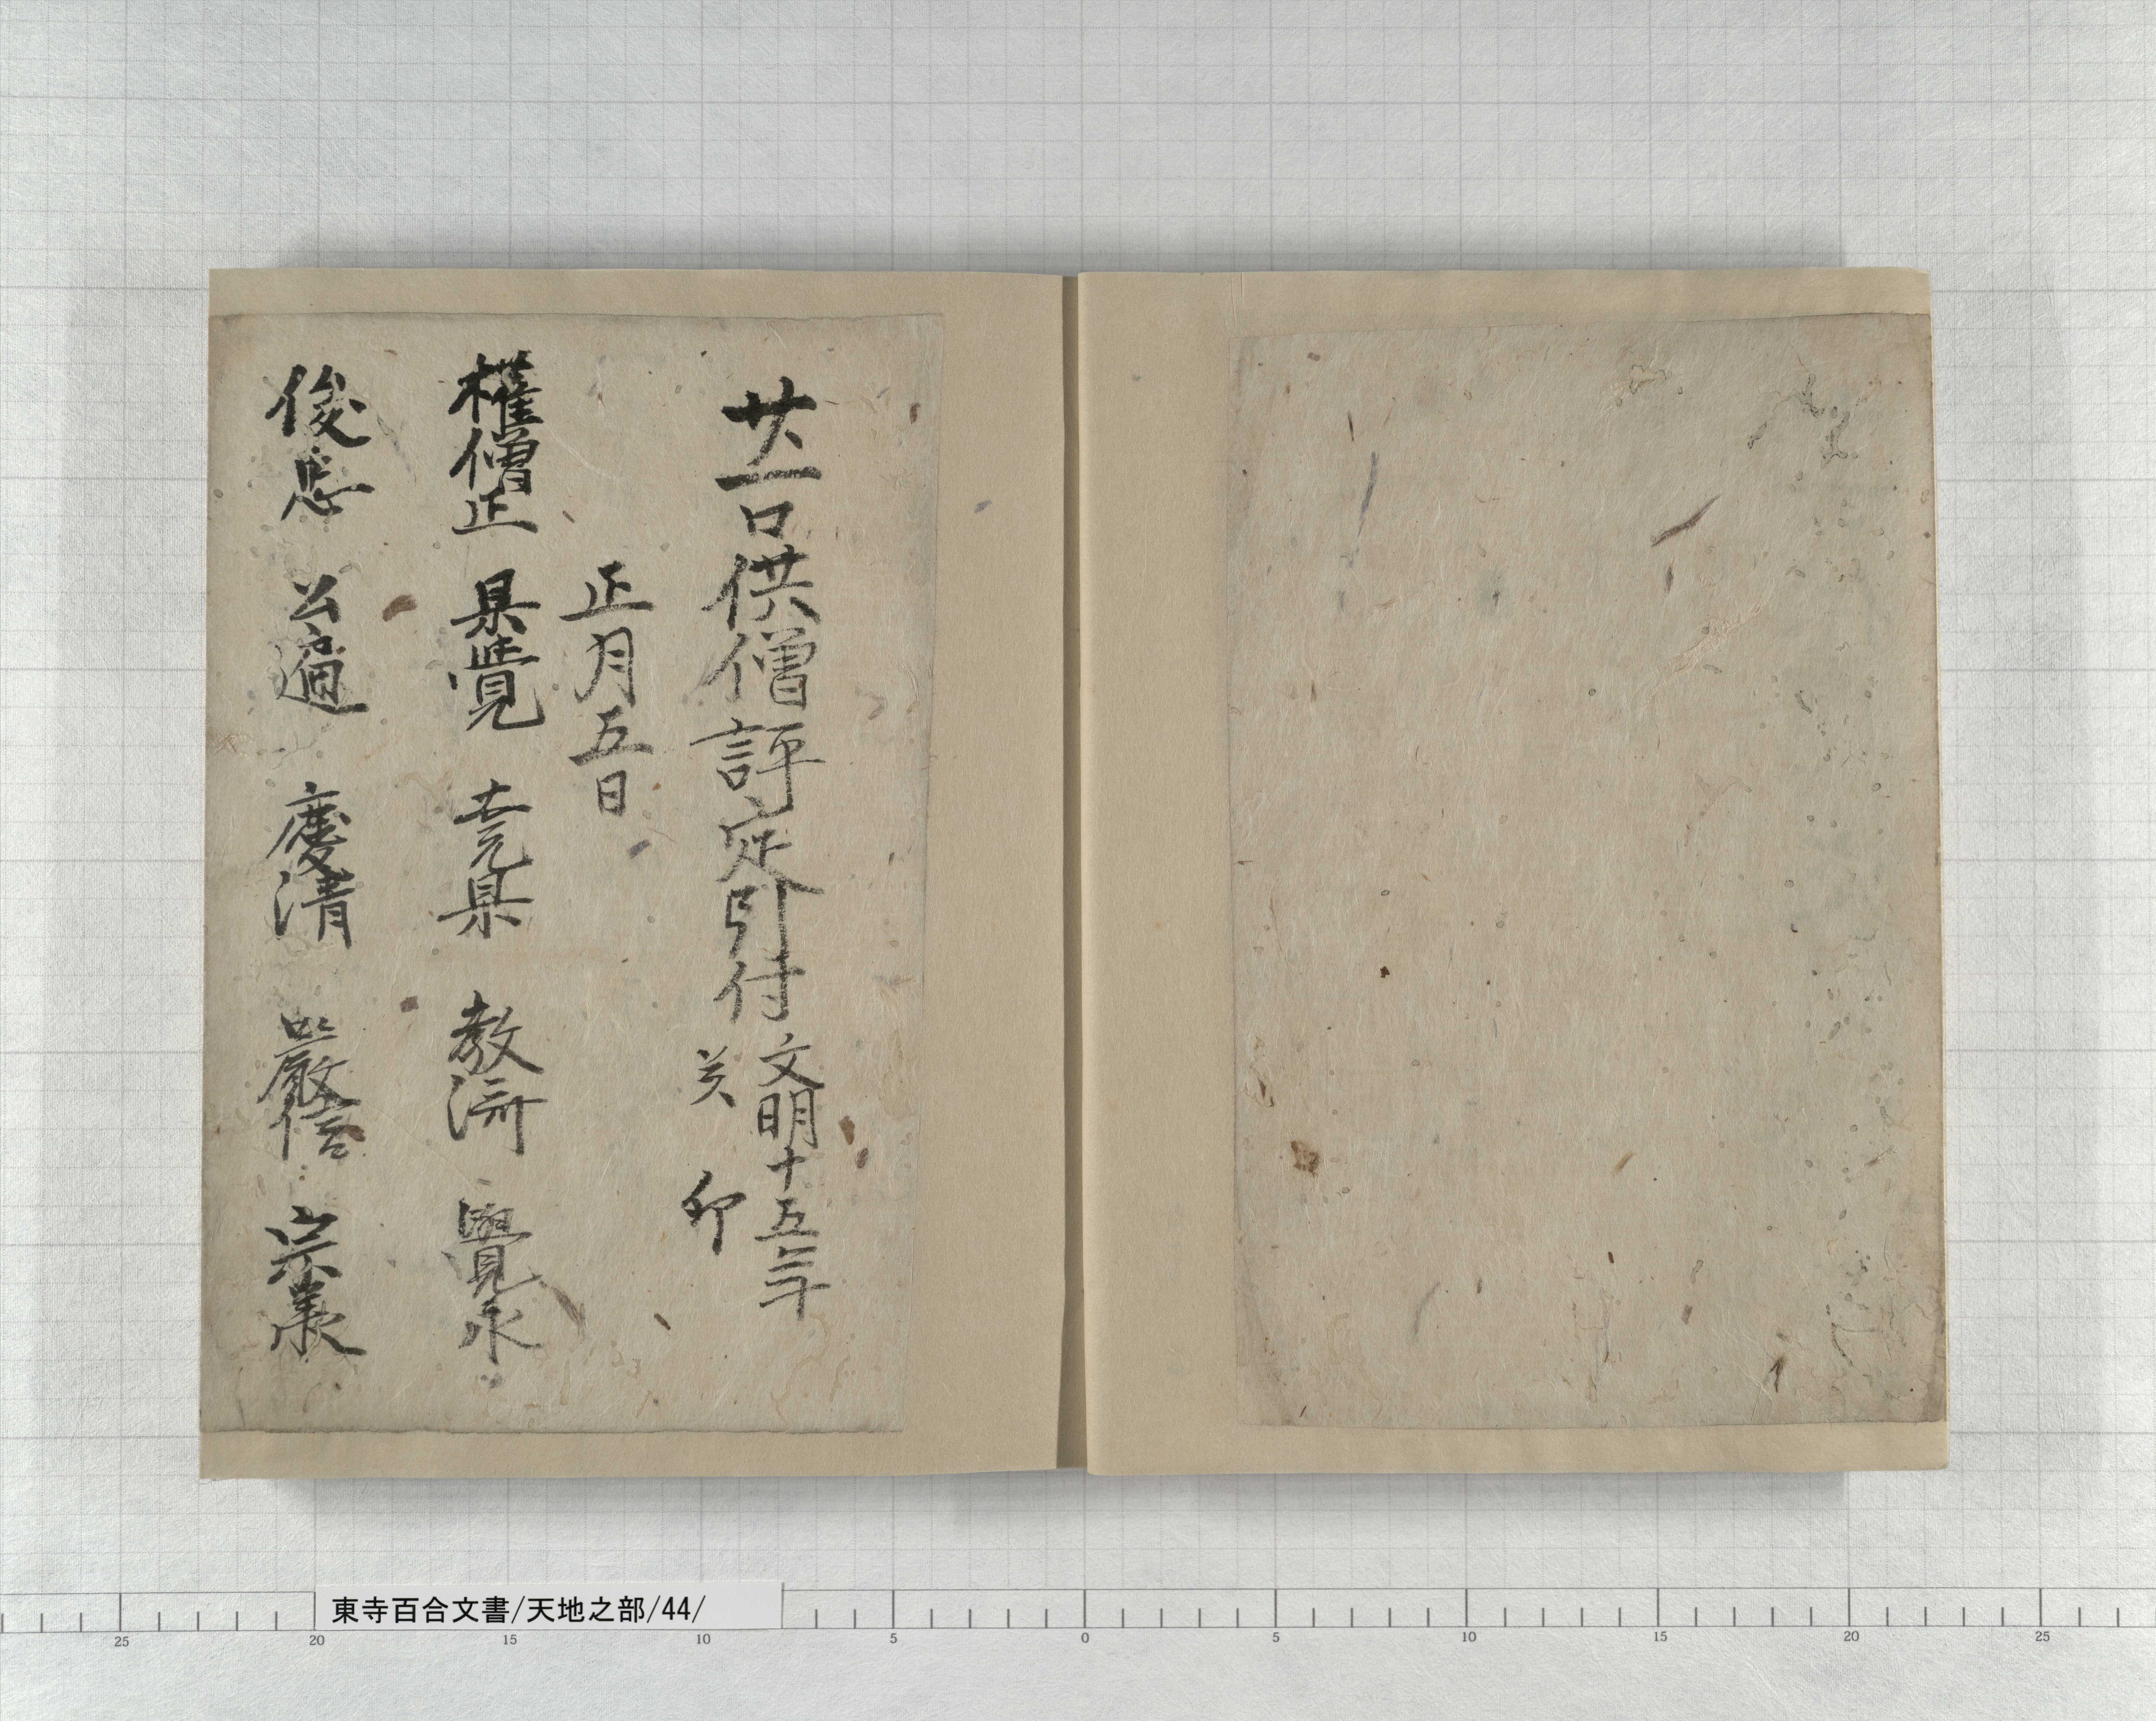 廿一口供僧評定引付 文明十五年
癸卯
正月五日
權僧正 杲覺 堯杲 教済 覺永
俊忠 公遍 慶清 嚴信 宗承
東寺百合文書/天地之部/44/
25 20 15 10 5 0 5 10 15 20 25